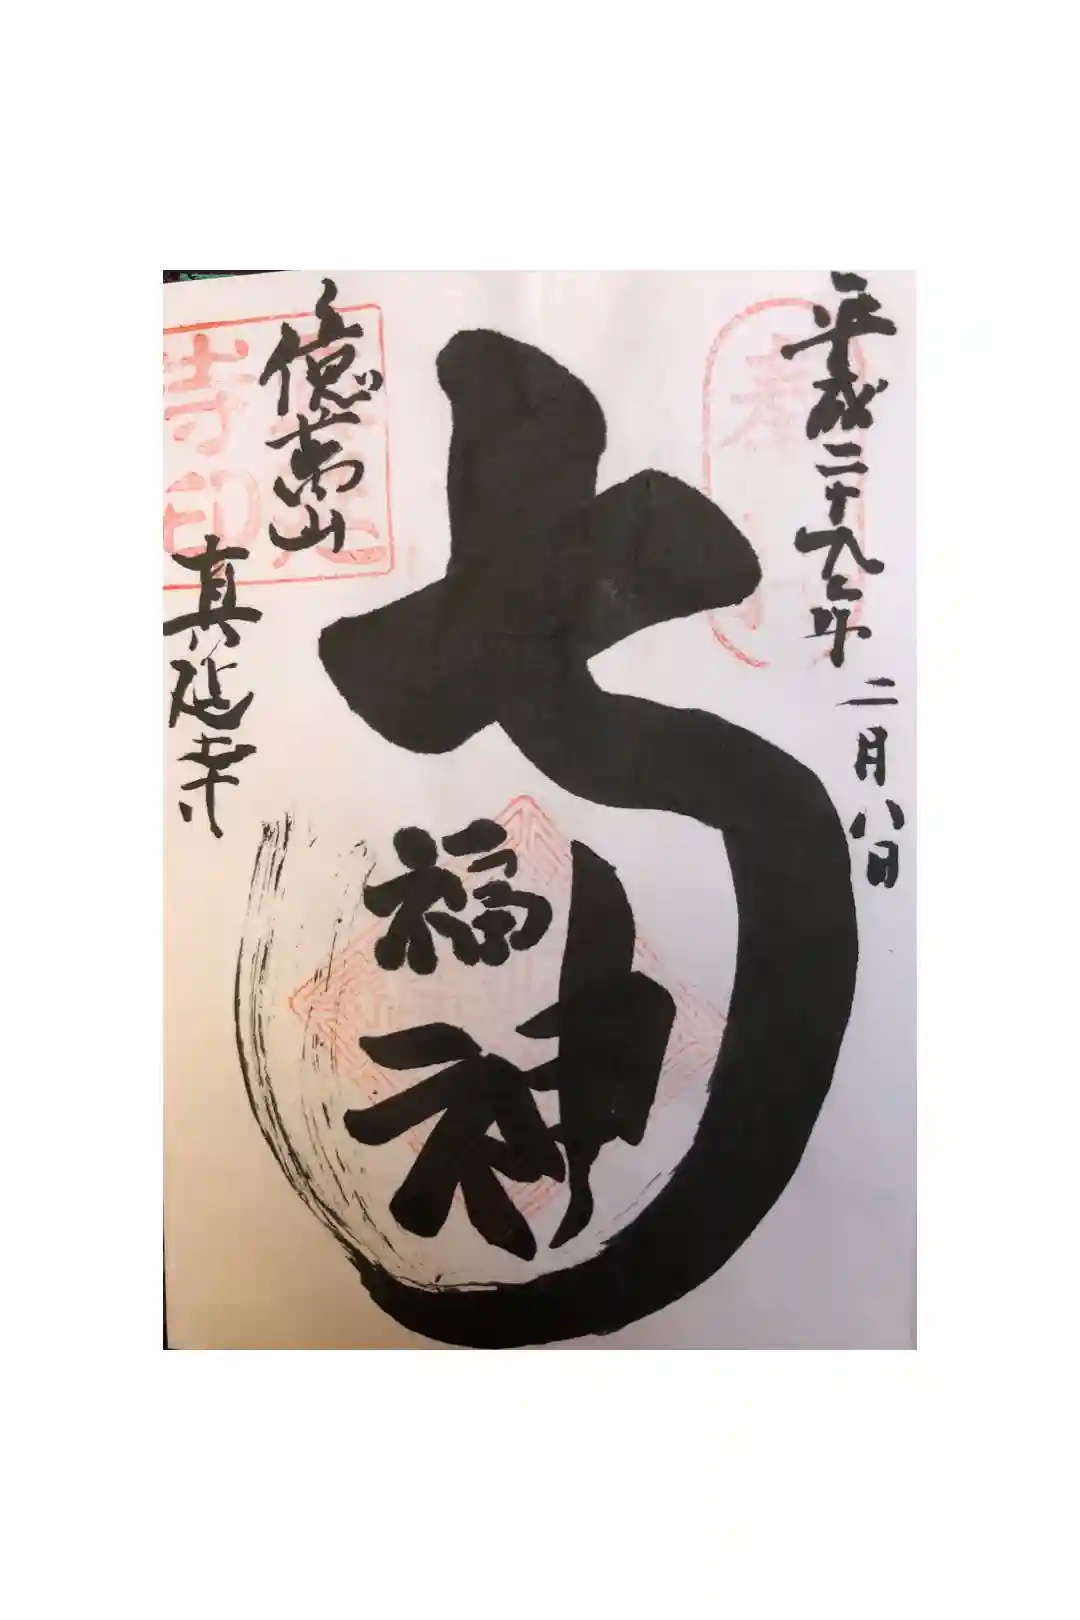 平成二十九年 二月八日
奉
七福神
億萬山
真延寺
寺印